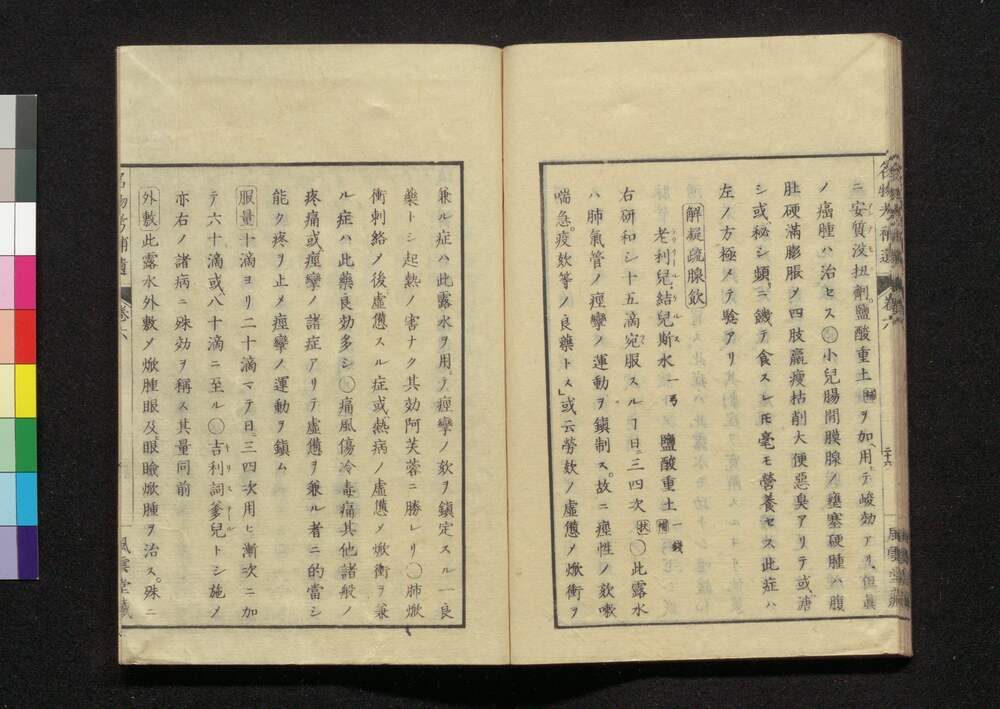 名物考補遺 卷六 二十六 風雲堂藏
ニ安質没扭劑。鹽酸重土補ヲ加ヘ用テ峻効アリ、但眞
ノ癌腫ハ治セス○小兒腸間膜腺ノ壅塞硬腫ハ腹
肚硬滿膨脹メ四肢羸瘦枯削大便惡臭アリテ或溏
シ或秘シ頻ニ饑テ食スレ𪜈毫モ營養セス此症ハ
左ノ方極メテ驗アリ
解凝疏腺飲
老利兒結兒斯水一弓 鹽酸重土一錢補
右研和シ十五滴宛服スルヿ日三四次扶○此露水
ハ肺氣管ノ痙攣ノ運動ヲ鎭制ス。故ニ痙性ノ欬嗽
喘急。疫欬等ノ良藥トス」或云勞欬ノ虛憊メ焮衝ヲ
兼ル症ハ此露水ヲ用テ痙攣ノ欬ヲ鎭定スル一良
藥トシ起熱ノ害ナク其効阿芙蓉ニ勝レリ○肺焮
衝刺絡ノ後虛憊スル症或熱病ノ虛憊メ焮衝ヲ兼
ル症ハ此藥良効多シ○痛風傷冷毒痛其他諸般ノ
疼痛或痙攣ノ諸症アリテ虛憊ヲ兼ル者ニ的當シ
能ク疼ヲ止メ痙攣ノ運動ヲ鎭ム
服量十滴ヨリ二十滴マテ日三四次用ヒ漸次ニ加
テ六十滴或八十滴ニ至ル○吉利詞爹兒トシ施メ
亦右ノ諸病ニ殊効ヲ稱ス其量同前
外敷此露水外敷メ焮腫眼及眼瞼焮腫ヲ治ス。殊ニ
名物考補遺 卷六 風雲堂藏